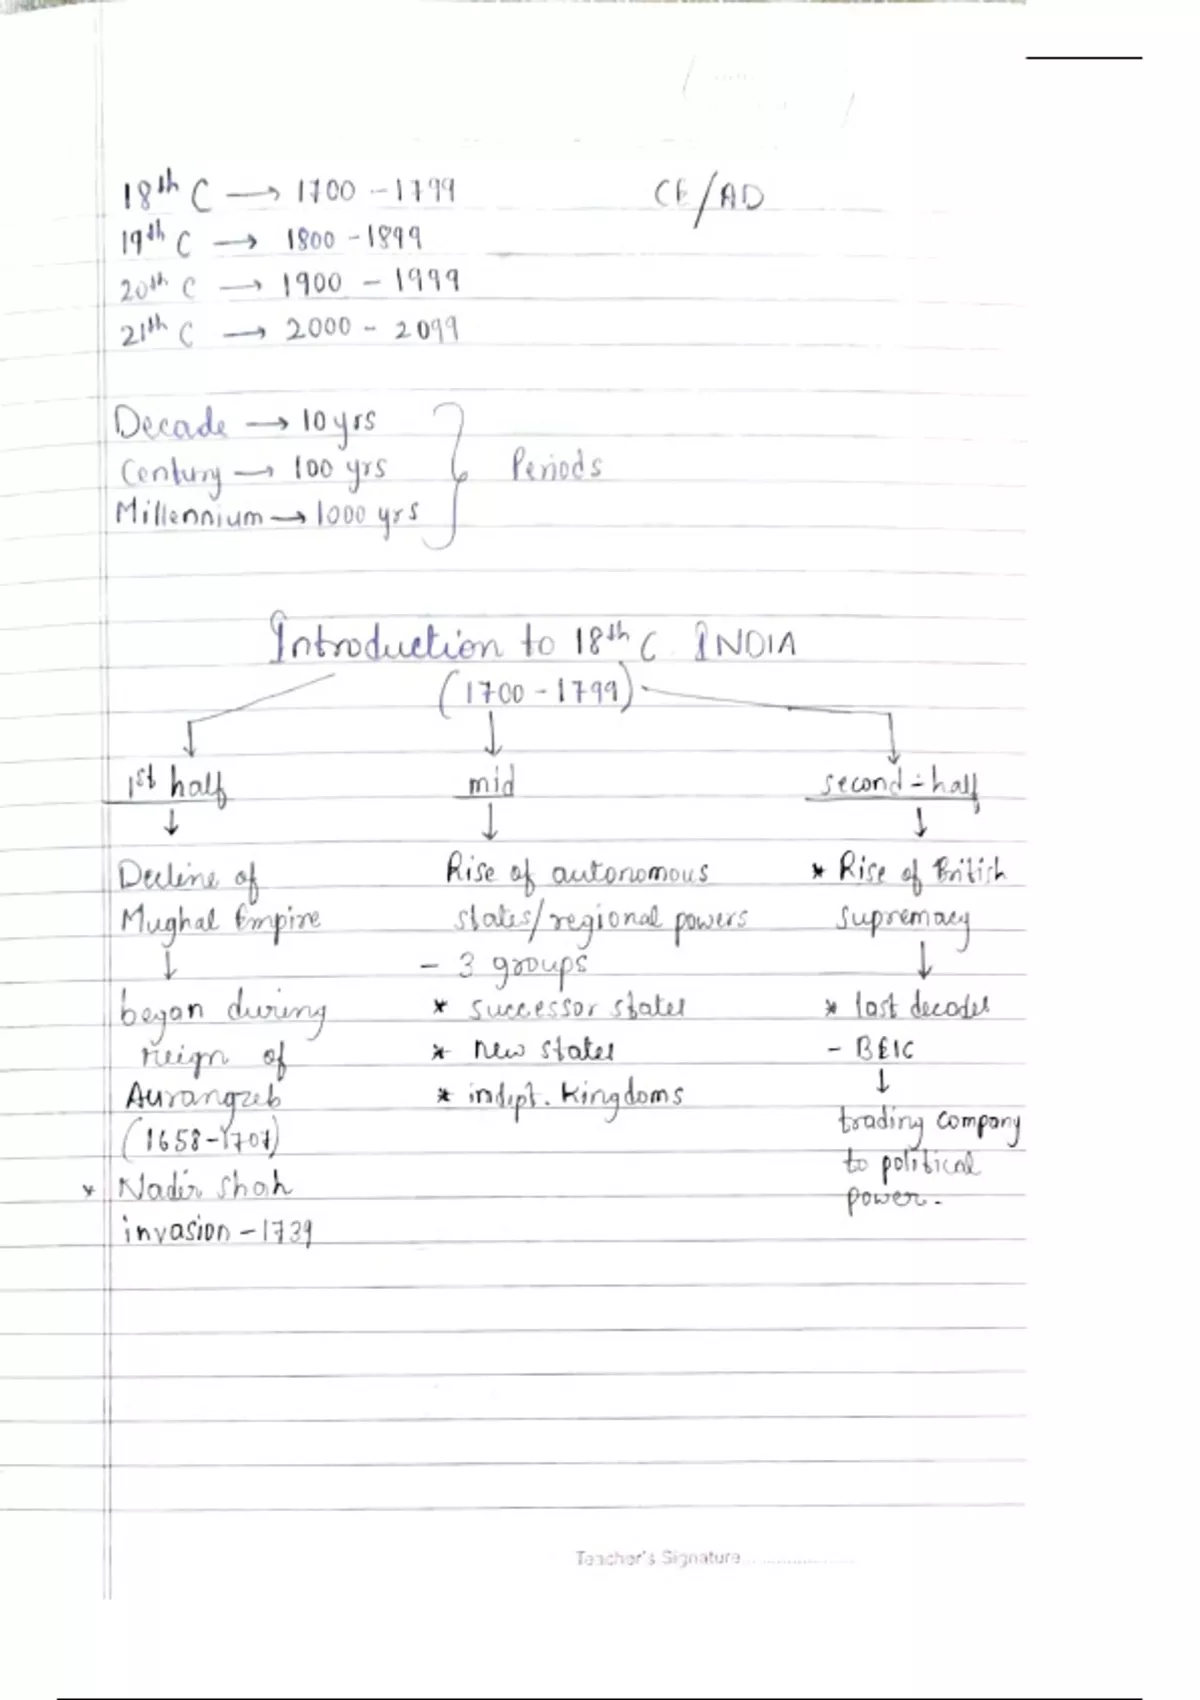 18th C → 1700 - 1799 CE/AD
19th C → 1800 - 1899
20th C → 1900 - 1999
21th C → 2000 - 2099
Decade → 10 yrs
Century → 100 yrs Periods
Millennium → 1000 yrs
Introduction to 18th C. INDIA
(1700 - 1799)
1st half mid second-half
Decline of Rise of autonomous * Rise of British
Mughal Empire states/regional powers supremacy
- 3 groups
began during * successor states * last decades
reign of * new states - BEIC
Aurangzeb * indept. kingdoms
(1658-1707) trading company
* Nadir Shah to political
invasion - 1739 power.
Teacher's Signature